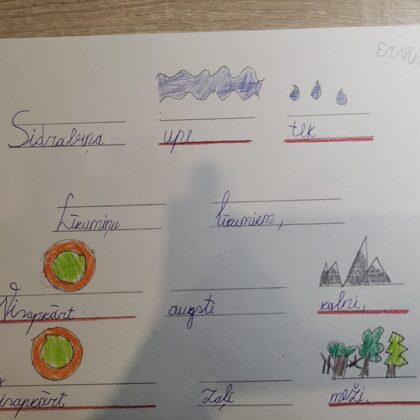 Sidrabiņa upe tek
Līkumiņu līkumiem,
Visapkārt augsti kalni,
Visapkārt zaļi meži.